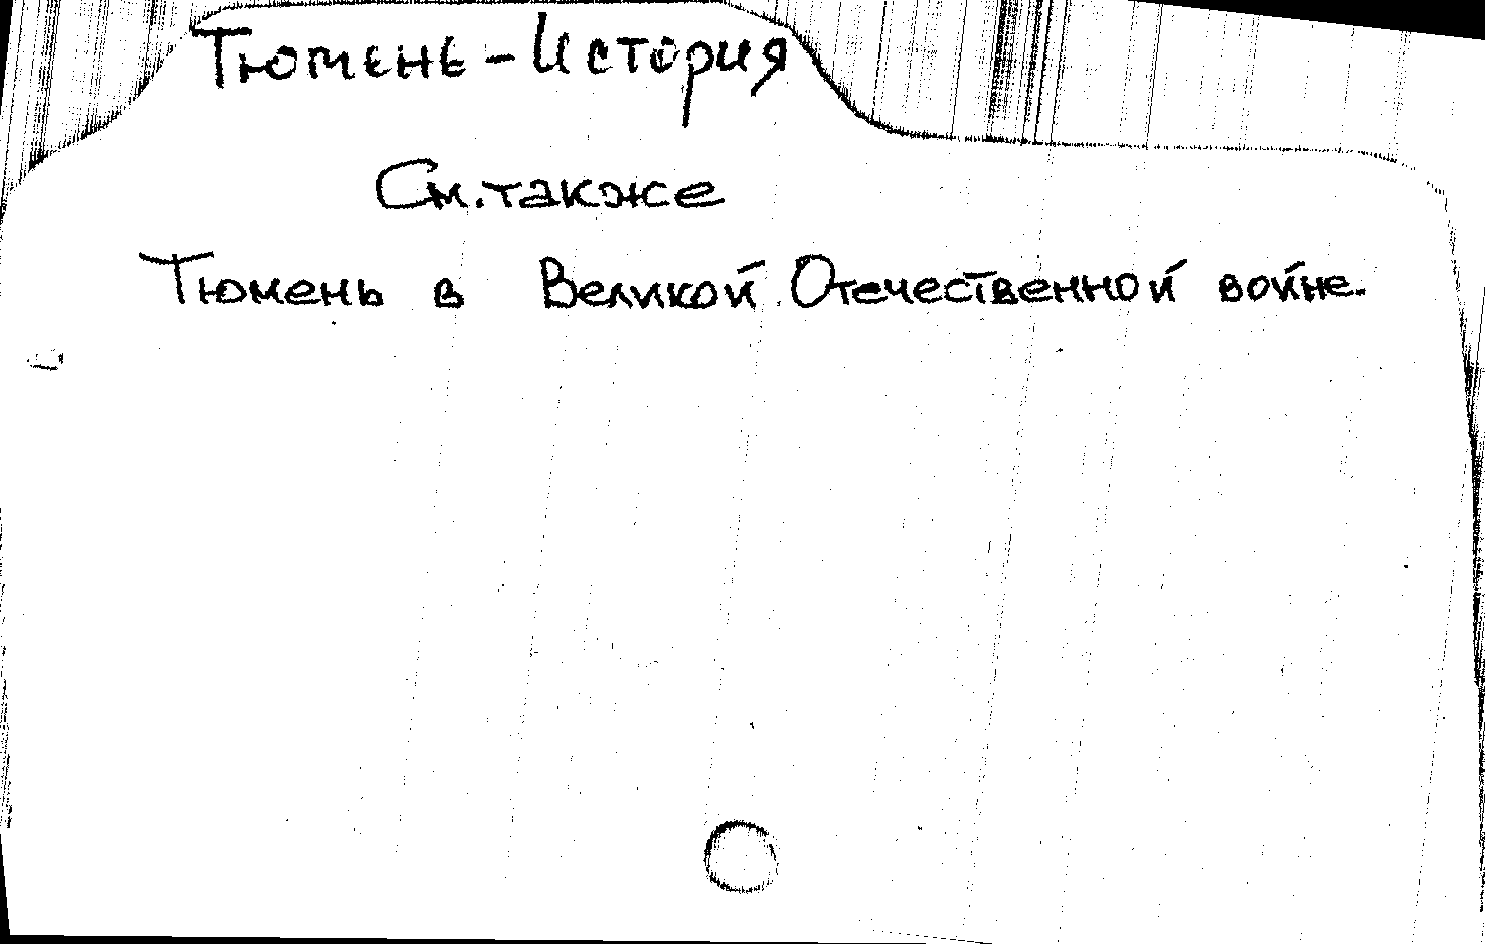 Тюмень - История
См. также
Тюмень в Великой Отечественной войне.